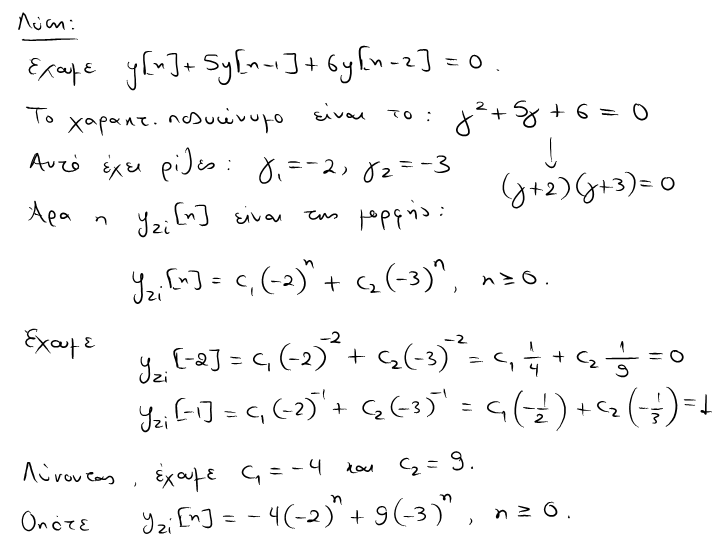 Λύση:
Έχουμε y[n] + 5y[n-1] + 6y[n-2] = 0.
Το χαρακτ. πολυώνυμο είναι το: γ² + 5γ + 6 = 0
↓
Αυτό έχει ρίζες: γ₁ = -2, γ₂ = -3
(γ+2)(γ+3) = 0
Άρα η y_zi[n] είναι της μορφής:
y_zi[n] = c₁(-2)ⁿ + c₂(-3)ⁿ, n ≥ 0.
Έχουμε y_zi[-2] = c₁(-2)⁻² + c₂(-3)⁻² = c₁ 1/4 + c₂ 1/9 = 0
y_zi[-1] = c₁(-2)⁻¹ + c₂(-3)⁻¹ = c₁(-1/2) + c₂(-1/3) = 1
Λύνοντας, έχουμε c₁ = -4 και c₂ = 9.
Οπότε y_zi[n] = -4(-2)ⁿ + 9(-3)ⁿ, n ≥ 0.